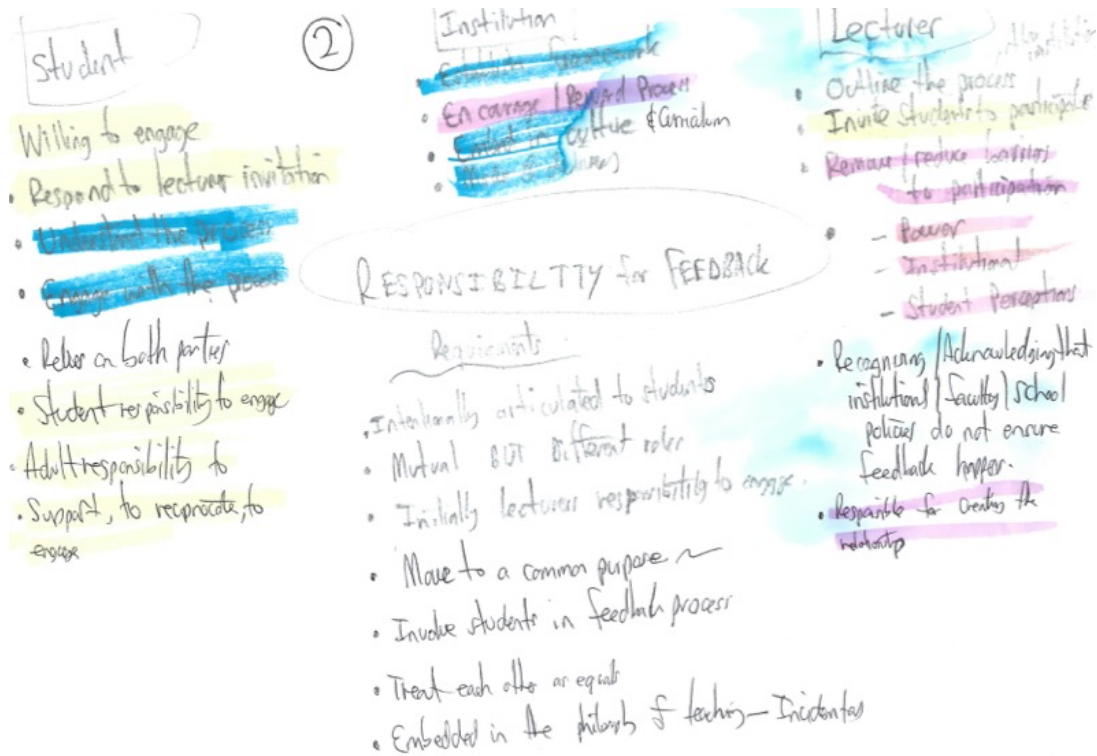 Student
Willing to engage
• Respond to lecturer invitation
• Understand the process
• Engage with the process
• Relies on both parties
• Student responsibility to engage
• Adult responsibility to
• Support, to reciprocate, to
engage
②
Institution
• Establish framework
• Encourage / Reward Process
• Embed in culture & Curriculum
•
RESPONSIBILITY for FEEDBACK
Requirements
• Intentionally articulated to students
• Mutual BUT Different roles
• Initially lecturers responsibility to engage.
• Move to a common purpose
• Involve students in feedback process
• Treat each other as equals
• Embedded in the philosophy of teaching —
Lecturer
• Outline the process
• Invite students to participate
• Remove / reduce barriers
to participation
• — Power
— Institutional
— Student Perceptions
• Recognising / Acknowledging that
institutional / faculty / school
policies do not ensure
feedback happen.
• Responsible for creating the
relationship